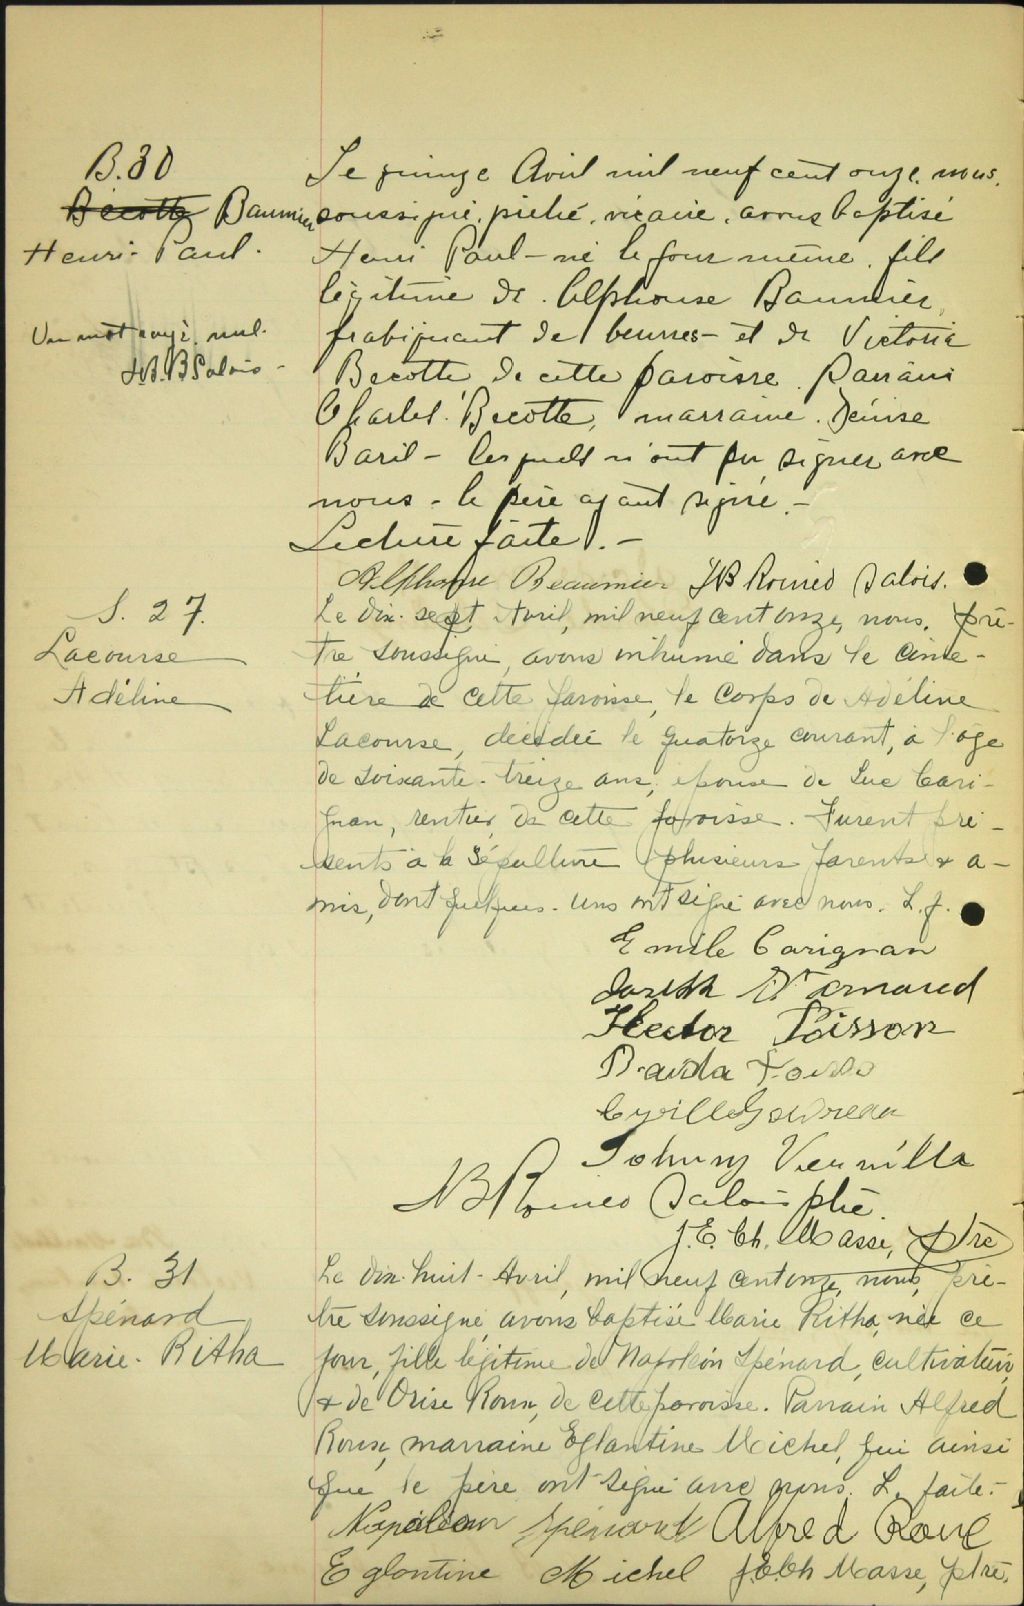 B. 30
Bécotte Baumier
Henri-Paul.
Un mot rayé nul.
JB. R Salois -
Le quinze Avril mil neuf cent onze, nous,
soussigné, vicaire, avons baptisé
Henri Paul - né le jour même, fils
légitime de Alphonse Baumier,
frabiquant de beurres - et de Victoria
Becotte de cette paroisse. Parrain
Charles Becotte, marraine. Denise
Baril - lesquels n'ont pu signer avec
nous - le père ayant signé. -
Lecture faite. -
Alphonse Beaumier JB Roméo Salois.
S. 27.
Lacourse
Adéline
Le dix-sept Avril, mil neuf cent onze, nous, prê-
tre soussigné, avons inhumé dans le cime-
tière de cette paroisse, le corps de Adéline
Lacourse, décédée le quatorze courant, à l'âge
de soixante-treize ans, épouse de Luc Cari-
gnan, rentier, de cette paroisse. Furent pré-
sents à la sépulture plusieurs parents & a-
mis, dont quelques-uns ont signé avec nous. L. f.
Emile Carignan
Joseph St Arnaud
Hector Poisson
Cyrille Gaudreau
Johnny Vernville
JB Romeo Salois ptre.
J. E. Ch. Masse, ptre
B. 31
Spénard
Marie-Ritha
Le dix-huit-Avril, mil neuf cent onze, nous, prê-
tre soussigné, avons baptisé Marie Ritha, née ce
jour, fille légitime de Napoléon Spénard, cultivateur,
& de Orise Roux, de cette paroisse. Parrain Alfred
Roux, marraine Eglantine Michel, qui ainsi
que le père ont signé avec nous. L. faite.-
Napoléon Spénard Alfred Roux
Eglantine Michel J.E.Ch Masse, ptre.